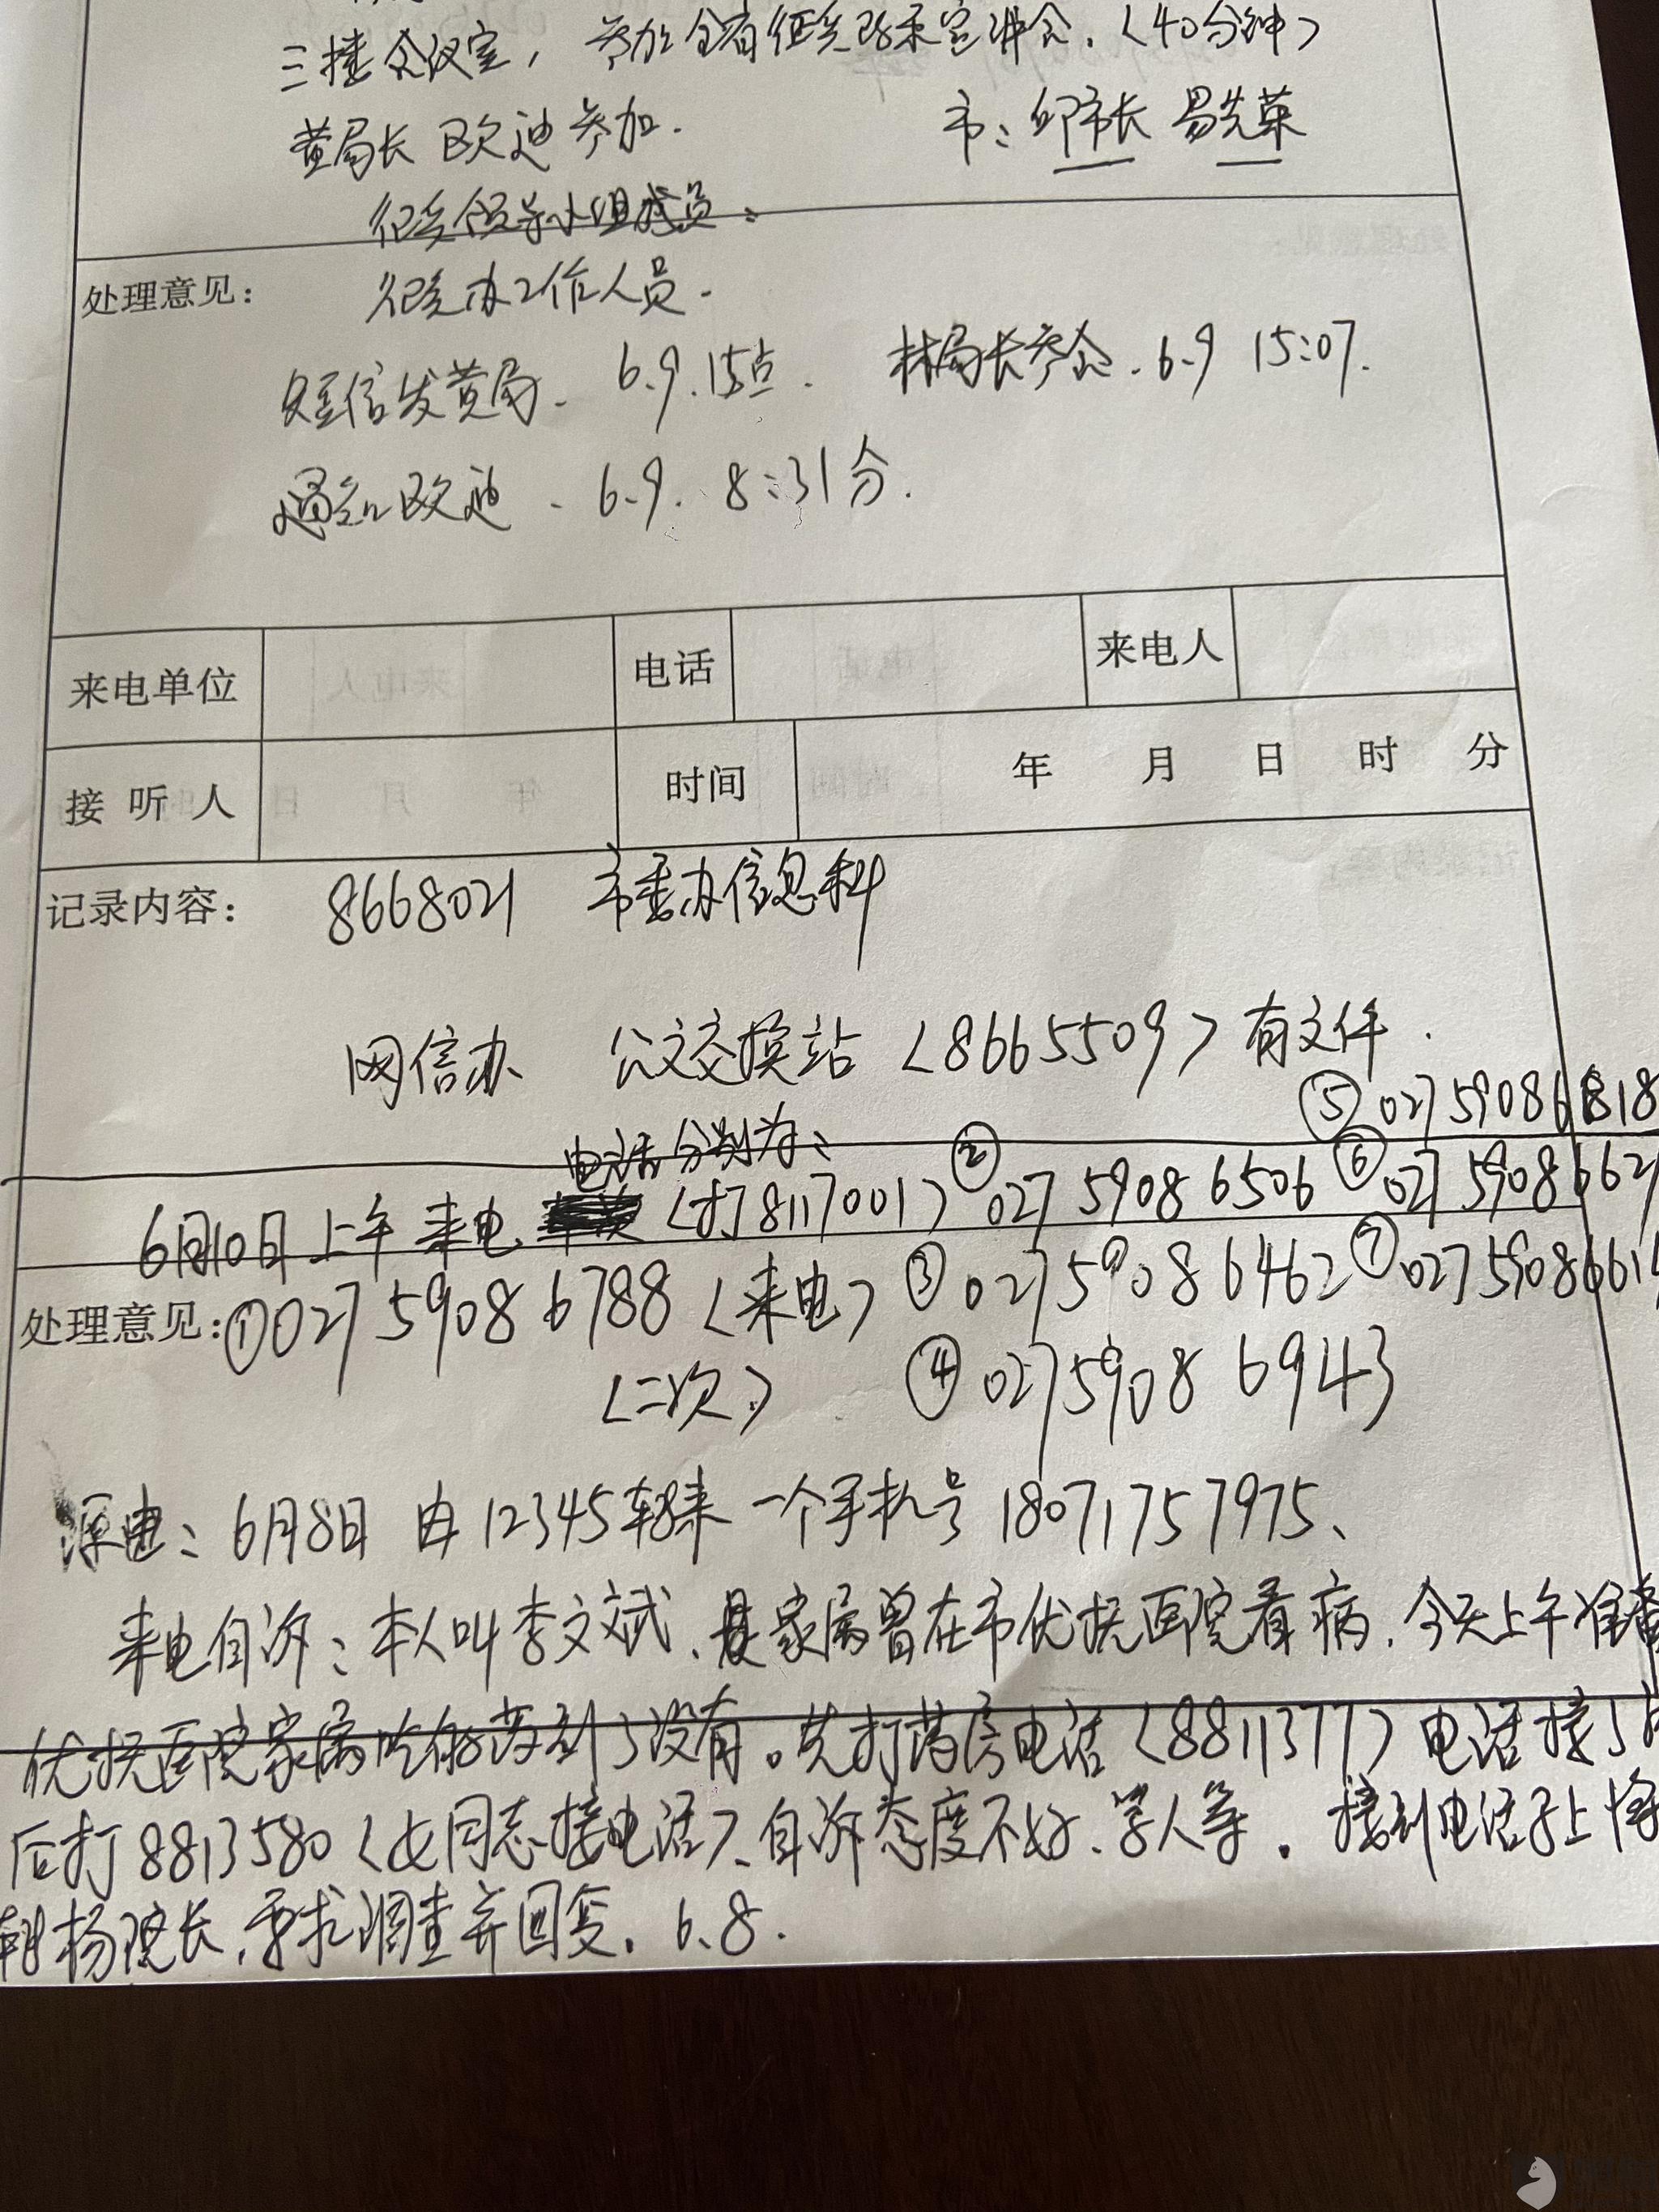 三楼会议室，参加全省征兵政策宣讲会.（40分钟）
黄局长 欧迪参加.
市：邱市长 易先荣
征兵领导小组成员：
处理意见：
征兵办工作人员.
短信发黄局. 6.9.15点. 林局长参会.6.9 15:07.
通知欧迪. 6.9. 8:31分.
来电单位 电话 来电人
接听人 时间 年 月 日 时 分
记录内容： 8668021 市委办信息科
网信办 公文交换站（8665509）有文件.
⑤02759086818
电话分别为：
6月10日上午来电（打8117001）②02759086506 ⑥0275908662
处理意见：①02759086788（来电）③02759086462 ⑦0275908661
（二次） ④02759086943
源电：6月8日 由12345转来一个手机号18071757975、
来电自诉：本人叫李文斌、其家属曾在市优抚医院看病.今天上午准备
优抚医院家属吃的药到了没有。先打药房电话（8811377）电话接了
后打8813580（女同志接电话）、自诉态度不好、骂人等.接到电话马上
杨院长，要求调查并回复. 6.8.